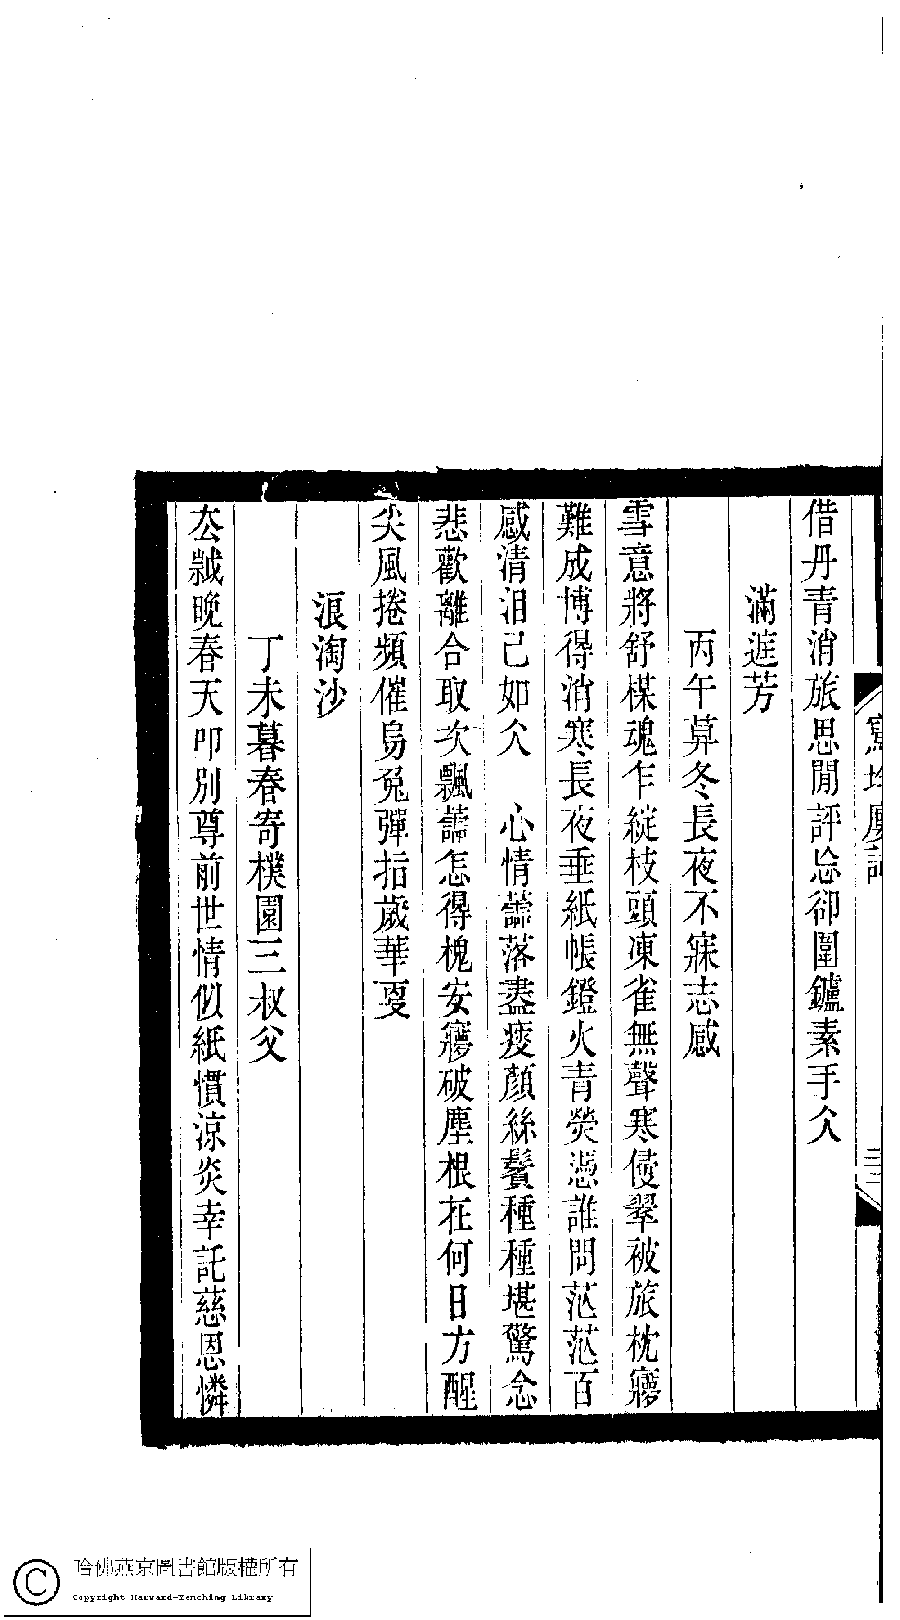 借丹青消旅思閒評忘卻圍鑪素手仌
滿庭芳
丙午莫冬長夜不寐志感
雪意將舒楳魂乍綻枝頭凍雀無聲寒侵翠被旅枕㝱
難成博得消寒長夜垂紙帳鐙火青熒憑誰問茫茫百
感清泪已如仌　心情蘦落盡瘦顏絲鬢種種堪驚念
悲歡離合取次飄蘦怎得槐安㝱破塵根在何日方醒
尖風捲頻催烏兔彈指歲華更
浪淘沙
丁未暮春寄樸園三叔父
厺歲晚春天叩別尊前世情似紙慣涼炎幸託慈恩憐
哈佛燕京圖書館版權所有
Copyright Harvard-Yenching Library